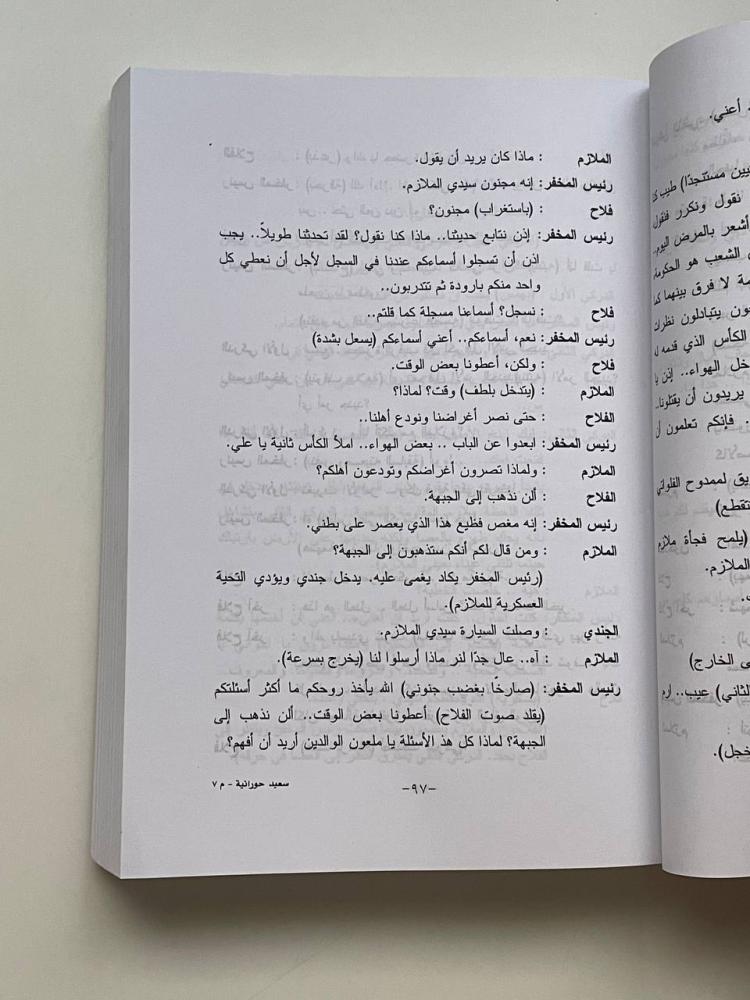 الملازم : ماذا كان يريد أن يقول.
رئيس المخفر: إنه مجنون سيدي الملازم.
فلاح : (باستغراب) مجنون؟
رئيس المخفر: إذن نتابع حديثنا.. ماذا كنا نقول؟ لقد تحدثنا طويلاً.. يجب
اذن أن تسجلوا أسماءكم عندنا في السجل لأجل أن نعطي كل
واحد منكم بارودة ثم تتدربون..
فلاح : نسجل؟ أسماءنا مسجلة كما قلتم..
رئيس المخفر: نعم، أسماءكم.. أعني أسماءكم (يسعل بشدة)
فلاح : ولكن، أعطونا بعض الوقت.
الملازم : (يتدخل بلطف) وقت؟ لماذا؟
الفلاح : حتى نصر أغراضنا ونودع أهلنا..
رئيس المخفر: ابعدوا عن الباب .. بعض الهواء.. املأ الكأس ثانية يا علي.
الملازم : ولماذا تصرون أغراضكم وتودعون أهلكم؟
الفلاح : ألن نذهب إلى الجبهة.
رئيس المخفر: إنه مغص فظيع هذا الذي يعصر على بطني.
الملازم : ومن قال لكم أنكم ستذهبون إلى الجبهة؟
(رئيس المخفر يكاد يغمى عليه. يدخل جندي ويؤدي التحية
العسكرية للملازم).
الجندي : وصلت السيارة سيدي الملازم.
الملازم : آه.. عال جدًا لنر ماذا أرسلوا لنا (يخرج بسرعة).
رئيس المخفر: (صارخًا بغضب جنوني) الله يأخذ روحكم ما أكثر أسئلتكم
(يقلد صوت الفلاح) أعطونا بعض الوقت.. ألن نذهب إلى
الجبهة؟ لماذا كل هذ الأسئلة يا ملعون الوالدين أريد أن أفهم؟
-٩٧-
سعيد حورانية - م ٧
أعني.
مستنجدًا) طيب
نقول ونكرر فنقول
أشعر بالمرض اليوم..
الشعب هو الحكومة
لا فرق بينهما
يتبادلون نظرات
الكأس الذي قدمه
الهواء.. إذن يا
يريدون أن يقتلونا..
فإنكم تعلمون أن
لممدوح
(يلمح فجأة ملازم
الملازم.
الخارج)
عيب.. ارم